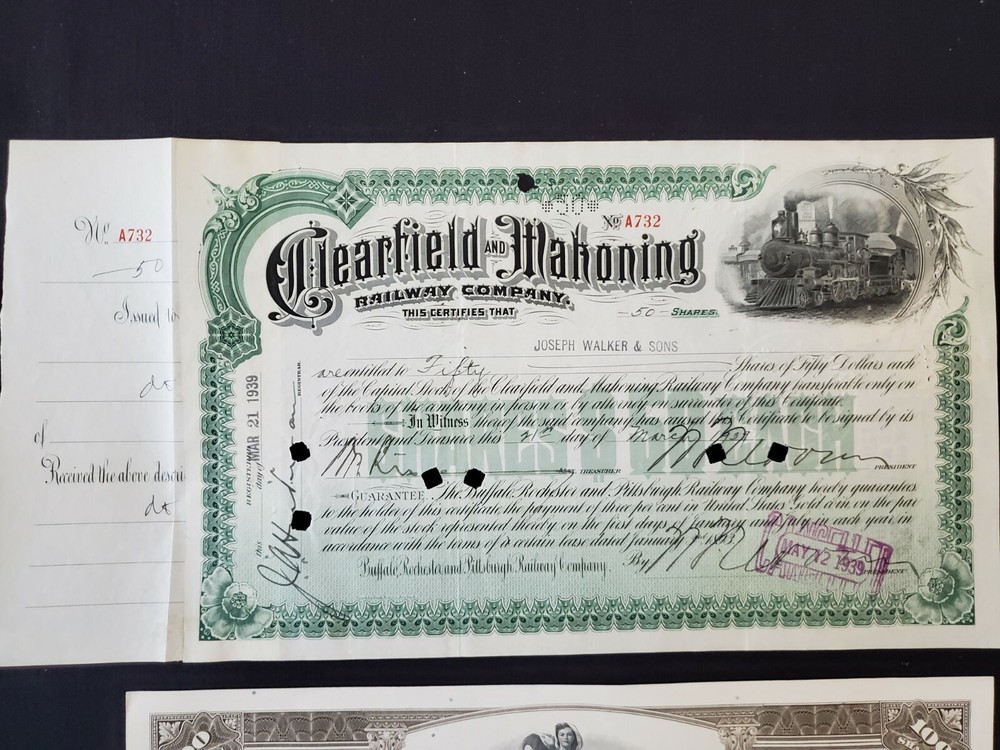 No. A732
50
Issued to
do
of
Received the above descri
do
*50*
No. A732
Clearfield AND Mahoning
RAILWAY COMPANY.
THIS CERTIFIES THAT
50 SHARES
JOSEPH WALKER & SONS
are entitled to Fifty Shares of Fifty Dollars each
of the Capital Stock of the Clearfield and Mahoning Railway Company transferable only on
the books of the company in person or by attorney on surrender of this Certificate.
In Witness thereof the said company has caused this Certificate to be signed by its
President and Treasurer this day of
ASST. TREASURER
PRESIDENT
GUARANTEE. The Buffalo Rochester and Pittsburgh Railway Company hereby guarantees
to the holder of this certificate the payment of three per cent in United States Gold coin on the par
value of the stock represented thereby on the first days of January and July in each year in
accordance with the terms of a certain lease dated January 1st 1893
Buffalo, Rochester and Pittsburgh Railway Company. By
REGISTERED this day of MAR 21 1939
REGISTRAR.
CANCELLED
MAY 12 1939